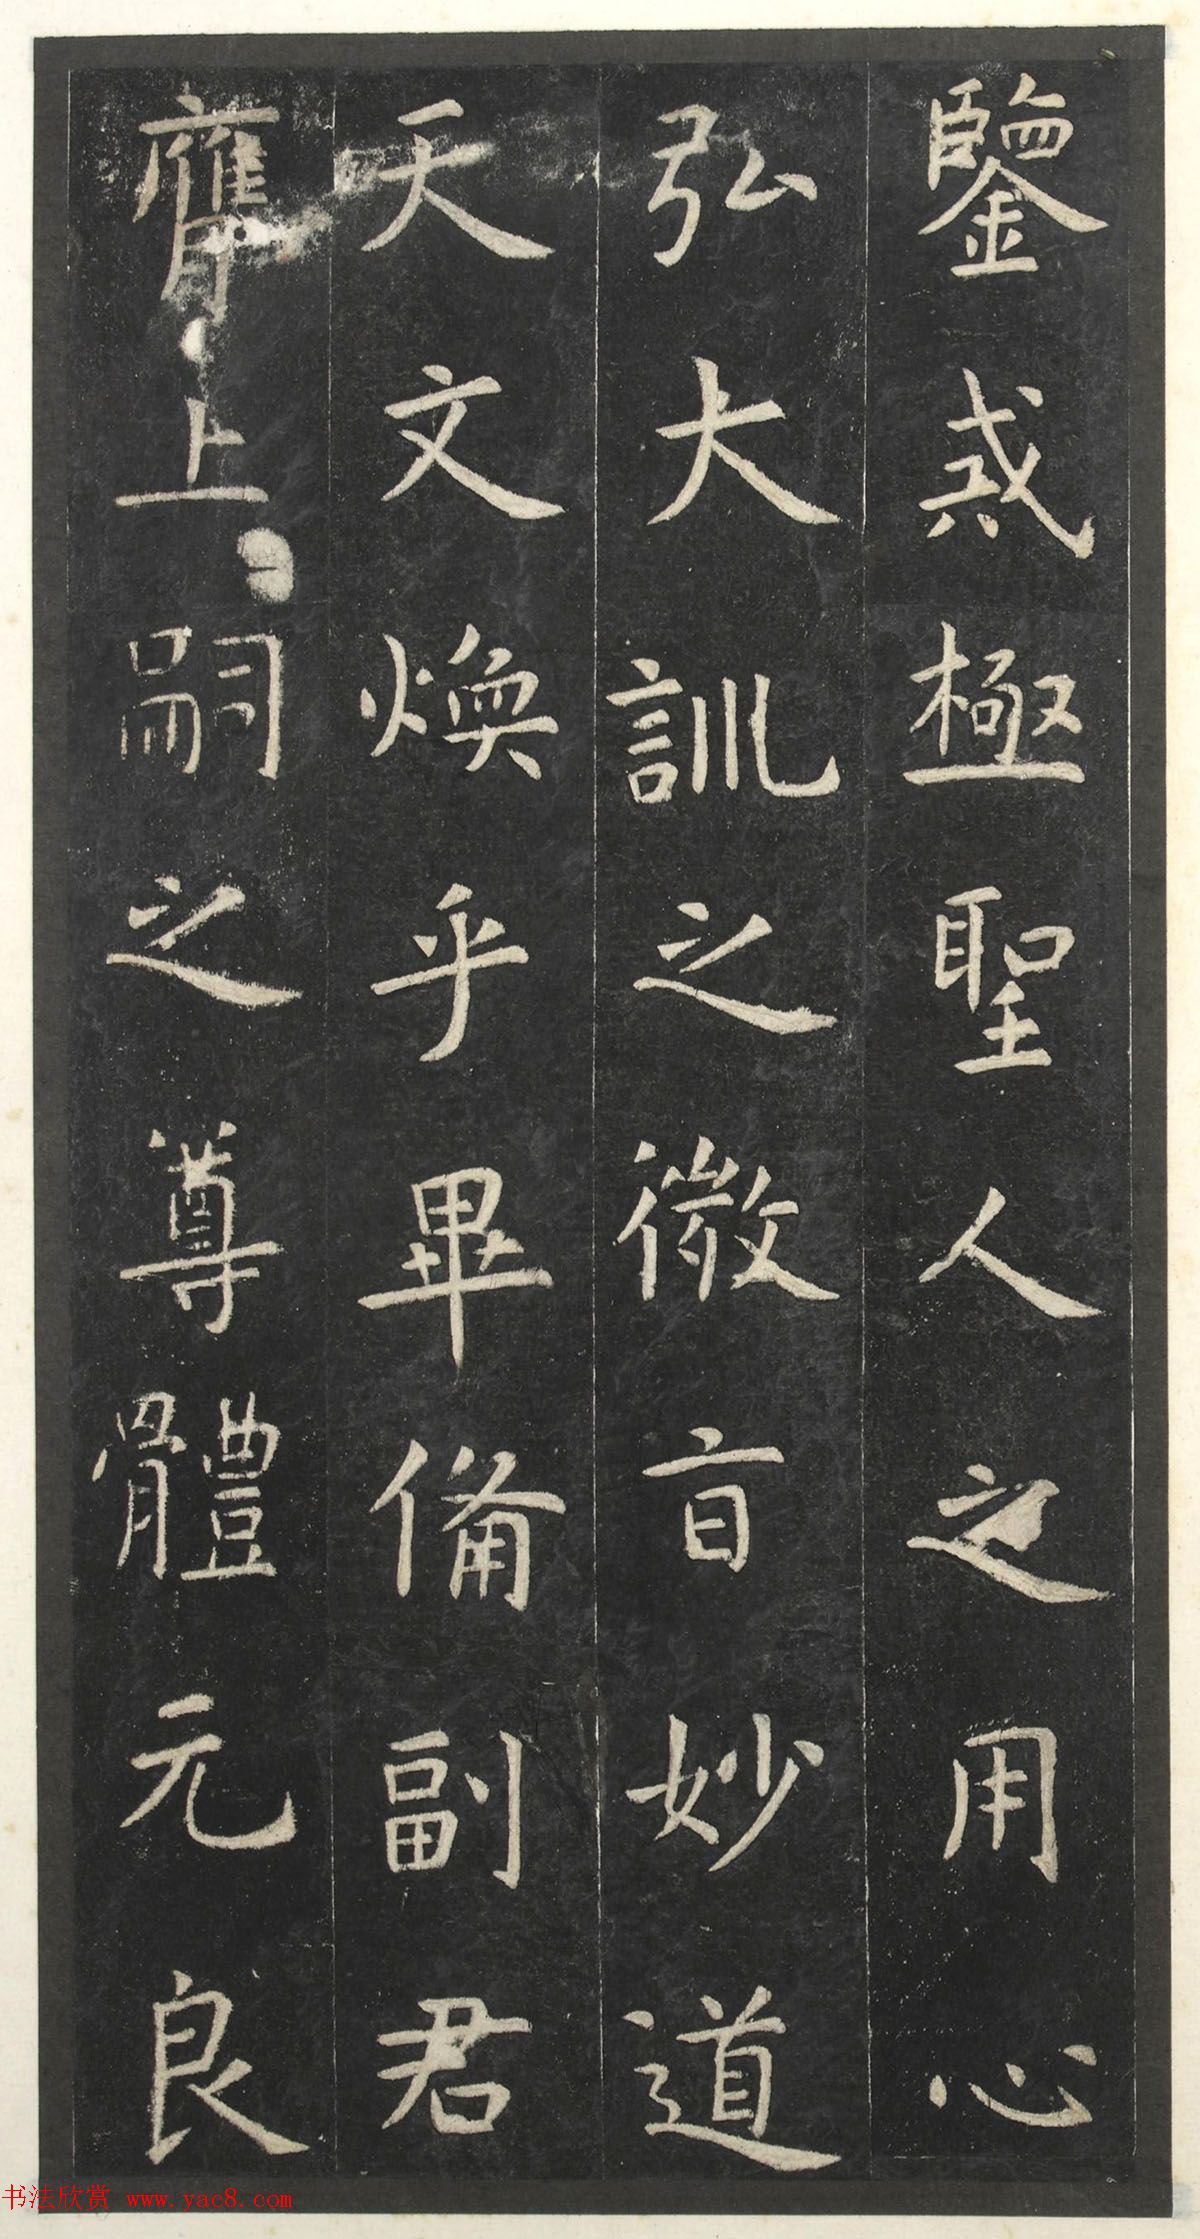 鑒戒極聖人之用心
弘大訓之微旨妙道
天文煥乎畢備副君
膺上嗣之尊體元良
书法欣赏 www.yac8.com